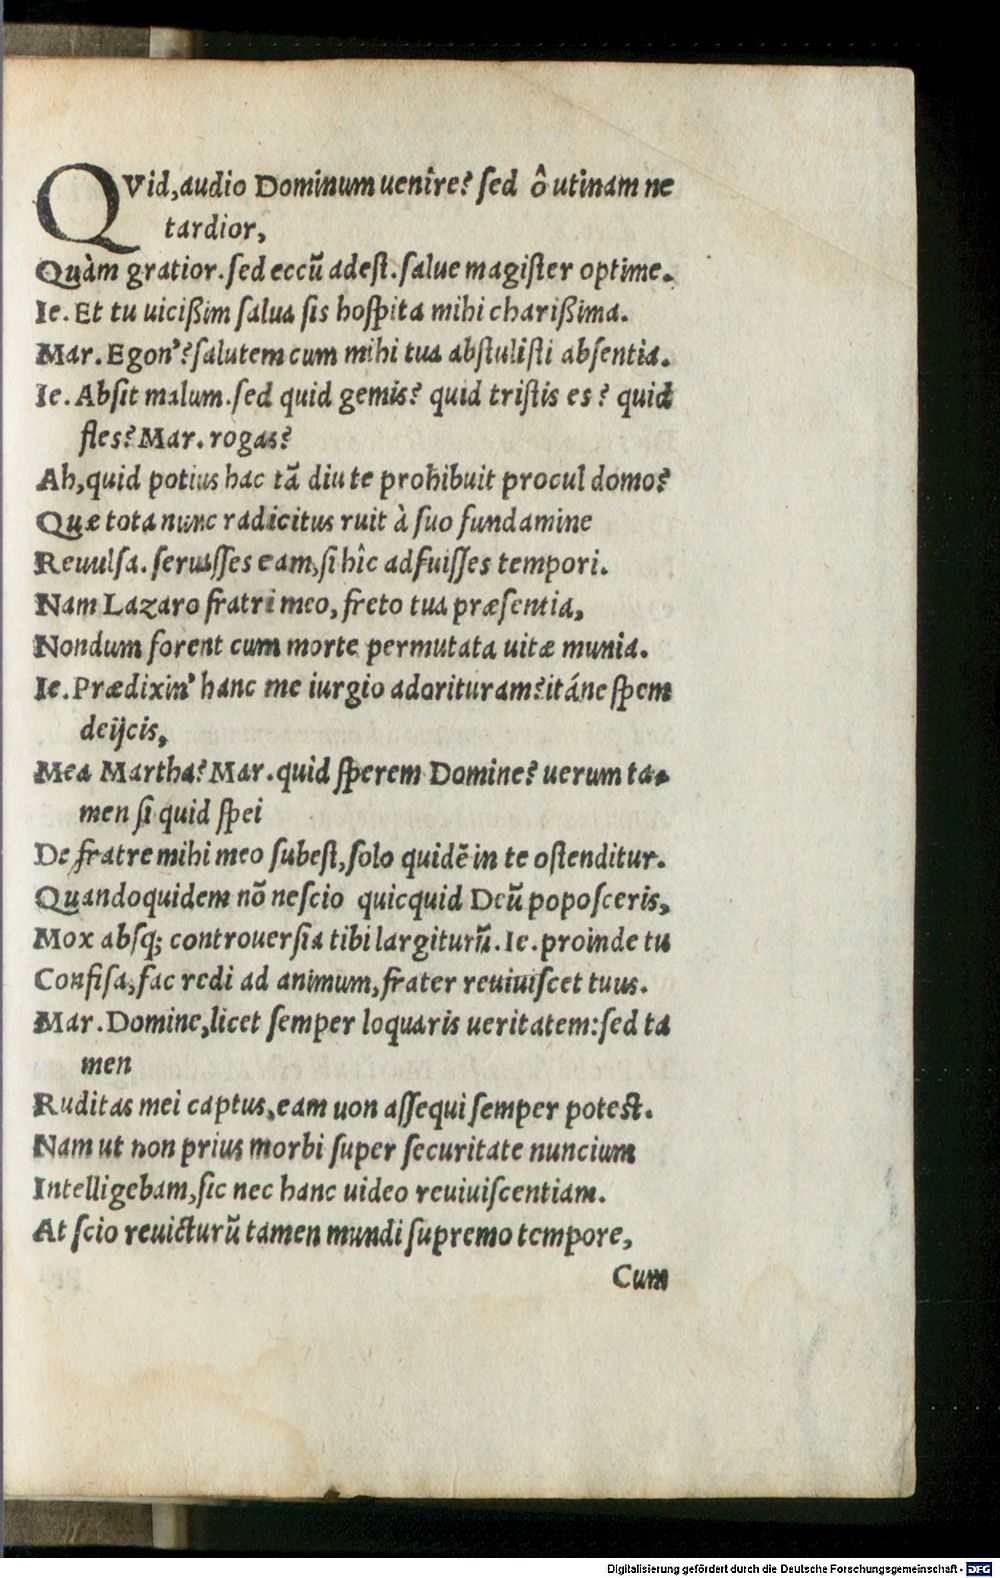 QVid, audio Dominum uenîre? sed ô utinam ne
tardior,
Quàm gratior. sed eccũ adest. salue magister optime.
Ie. Et tu uicißim salua sis hospita mihi charißima.
Mar. Egon'? salutem cum mihi tua abstulisti absentia.
Ie. Absit malum. sed quid gemis? quid tristis es? quid
fles? Mar. rogas?
Ah, quid potius hac tã diu te prohibuit procul domo?
Quæ tota nunc radicitus ruit à suo fundamine
Reuulsa. seruasses eam, si hîc adfuisses tempori.
Nam Lazaro fratri meo, freto tua præsentia,
Nondum forent cum morte permutata uitæ munia.
Ie. Prædixin' hanc me iurgio adorituram? itáne spem
deijcis,
Mea Martha? Mar. quid sperem Domine? uerum ta-
men si quid spei
De fratre mihi meo subest, solo quidẽ in te ostenditur.
Quandoquidem nõ nescio quicquid Deũ poposceris,
Mox absq; controuersia tibi largiturũ. Ie. proinde tu
Confisa, fac redi ad animum, frater reuiuiscet tuus.
Mar. Domine, licet semper loquaris ueritatem: sed ta
men
Ruditas mei captus, eam uon assequi semper potest.
Nam ut non prius morbi super securitate nuncium
Intelligebam, sic nec hanc uideo reuiuiscentiam.
At scio reuicturũ tamen mundi supremo tempore,
Cum
Digitalisierung gefördert durch die Deutsche Forschungsgemeinschaft - DFG